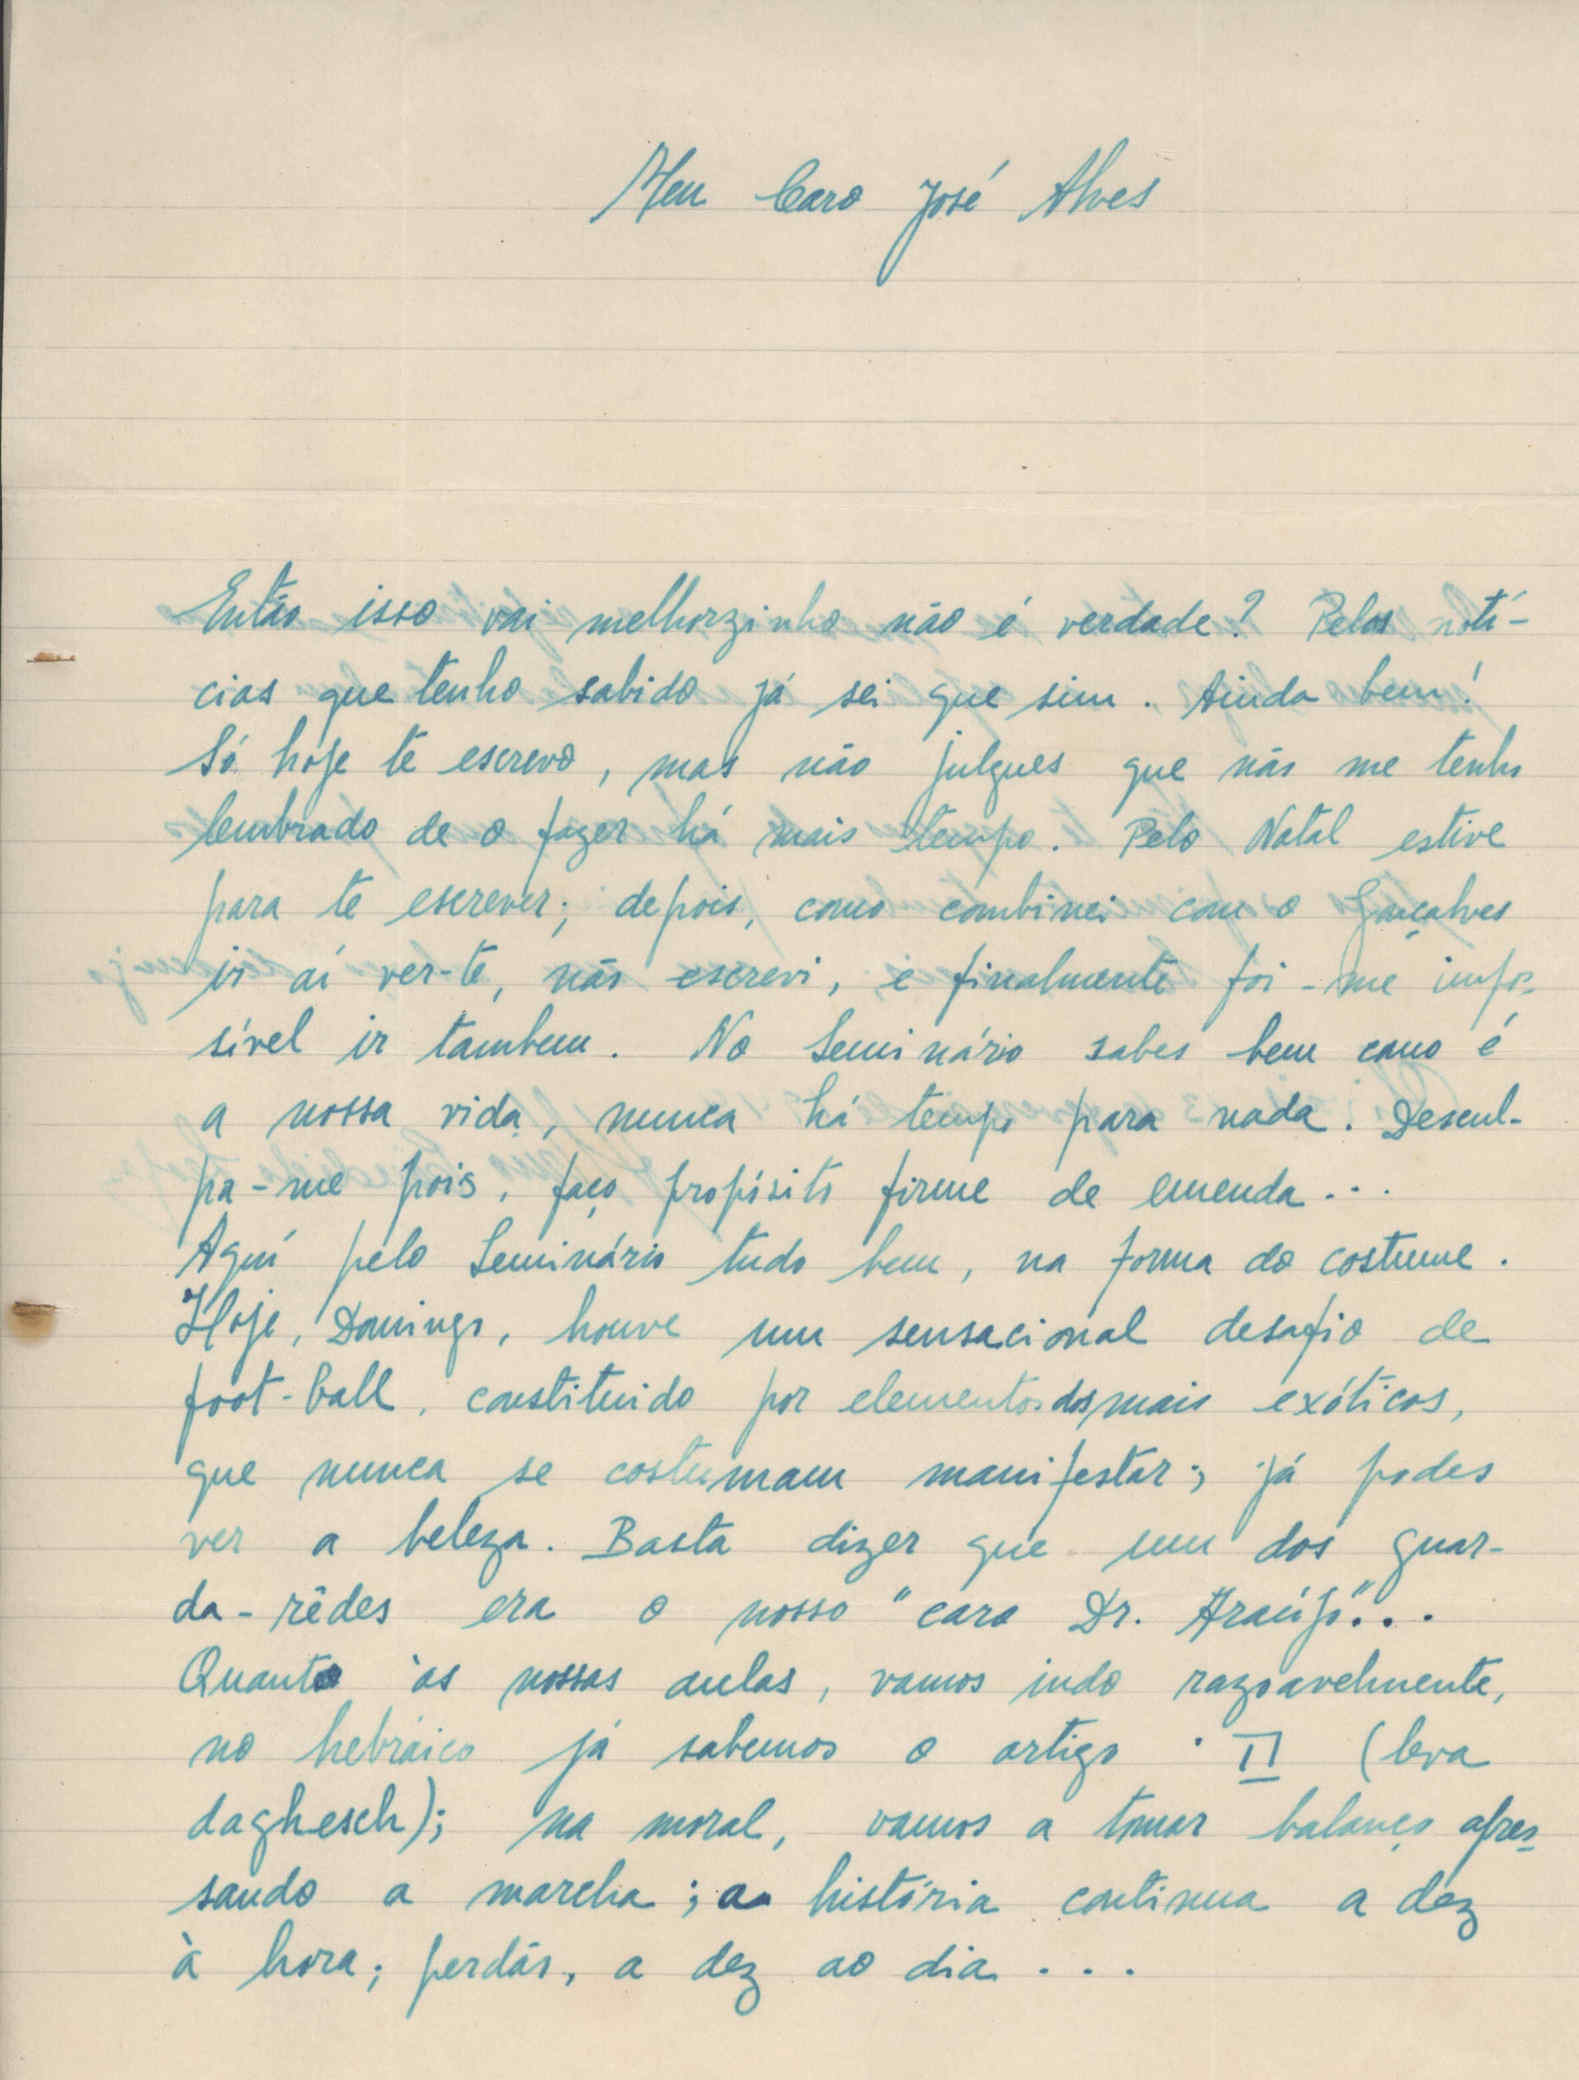 Meu Caro José Alves
Então isso vai melhorzinho não é verdade? Pelas notí-
cias que tenho sabido já sei que sim. Ainda bem!
Só hoje te escrevo, mas não julgues que não me tenho
lembrado de o fazer há mais tempo. Pelo Natal estive
para te escrever; depois, como combinei com o Gonçalves
ir aí ver-te, não escrevi, e finalmente foi-me impos-
sível ir tambem. No Seminário sabes bem como é
a nossa vida, nunca há tempo para nada. Descul-
pa-me pois, faço propósito firme de emenda...
Aquí pelo Seminário tudo bem, na forma do costume.
Hoje, Domingo, houve um sensacional desafio de
foot-ball, constituido por elementos dos mais exóticos,
que nunca se costumam manifestar; já podes
ver a beleza. Basta dizer que um dos guar-
da-rêdes era o nosso "caro Dr. Araújo"...
Quanto às nossas aulas, vamos indo razoavelmente,
no hebráico já sabemos o artigo · ה (leva
daghesch); na moral, vamos a tomar balanço apres-
sando a marcha; a história continua a dez
à hora; perdão, a dez ao dia...